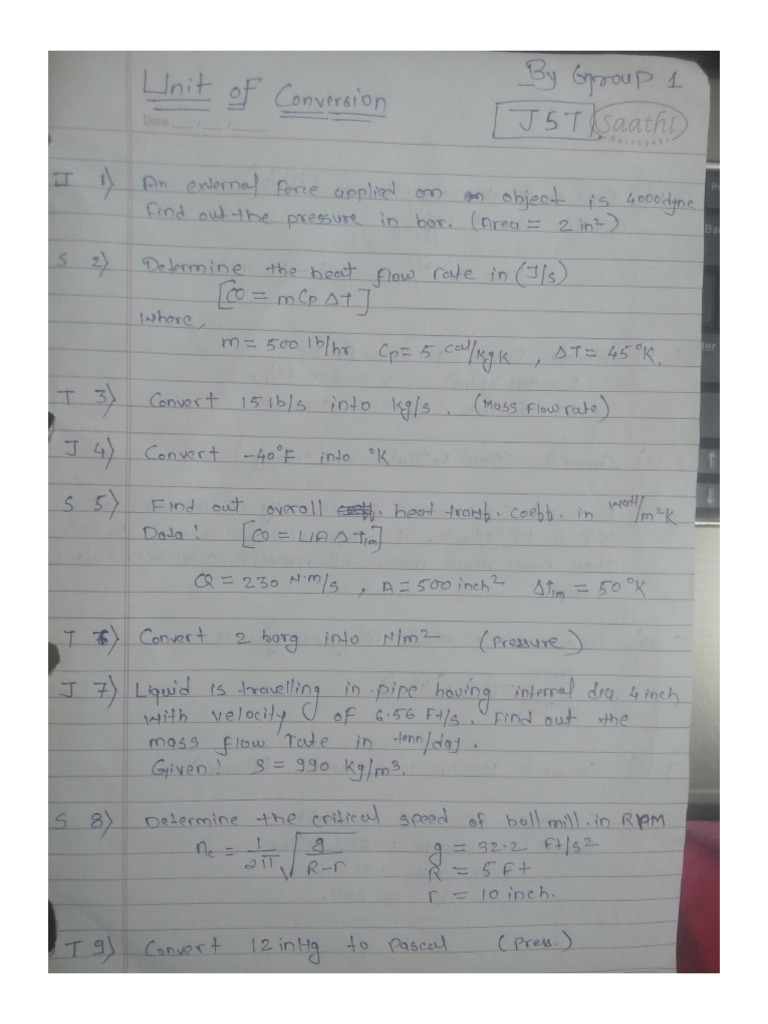 Unit of Conversion
By Group 1
Date __/__/__
JST Saathi
Notebooks
J 1) An external force applied on object is 4000 dyne
Find out the pressure in bar. (Area = 2 in²)
S 2) Determine the heat flow rate in (J/s)
[Q = mCpΔT]
where,
m = 500 lb/hr Cp = 5 cal/kgK , ΔT = 45°K.
T 3) Convert 15 lb/s into kg/s. (Mass Flow rate)
J 4) Convert -40°F into °K
S 5) Find out overall heat transf. coeff. in watt/m²K
Data: [Q = UAΔTlm]
Q = 230 N·m/s , A = 500 inch² Δtlm = 50°K
T 6) Convert 2 barg into N/m² (Pressure)
J 7) Liquid is travelling in pipe having internal dia 4 inch
with velocity of 6.56 Ft/s. Find out the
mass flow rate in tonn/day.
Given: ρ = 990 kg/m³.
S 8) Determine the critical speed of ball mill in RPM
nc = 1/2π √g/R-r g = 32.2 Ft/s²
R = 5 Ft
r = 10 inch.
T 9) Convert 12 inHg to Pascal (Press.)